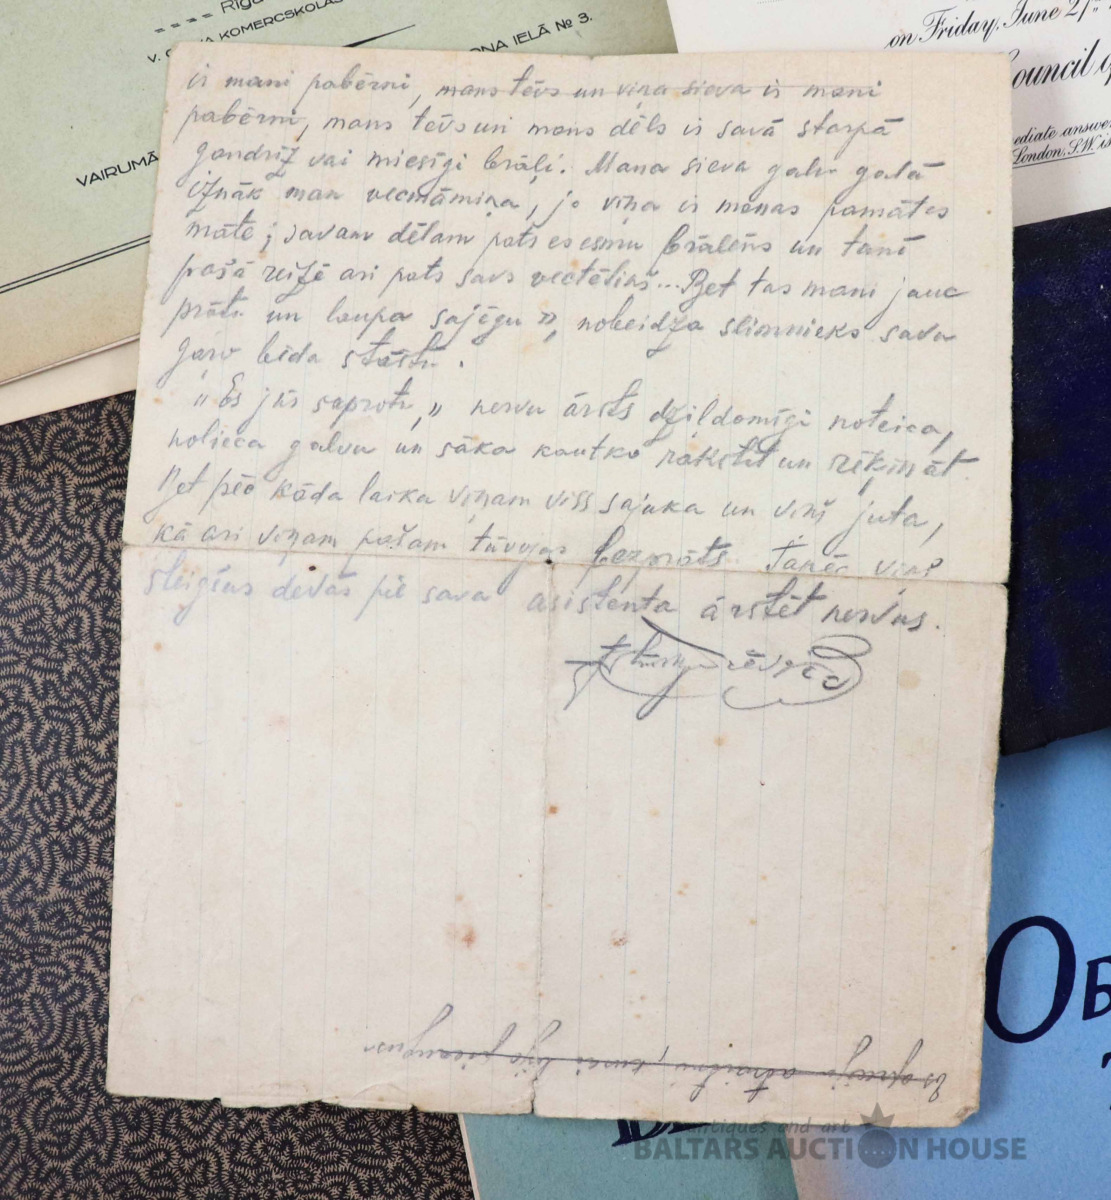 Rīga
V. OLAVA KOMERCSKOLAS
IELĀ № 3.
VAIRUMĀ
on Friday, June 27th
Council of
mediate answer
London, S.W. is
ir mani pabērni, mans tēvs un viņa sieva ir mani
pabērni, mans tēvs un mans dēls ir savā starpā
gandrīz vai miesīgi brāļi. Mana sieva galu galā
iznāk man vecmāmiņa, jo viņa ir manas pamātes
māte; savam dēlam pats es esmu brālēns un tanī
pašā reizē arī pats savs vectētiņš... Bet tas mani jauc
prātu un laupa sajēgu", nobeidza slimnieks savu
garo bēda stāstu.
"Es jūs saprotu," nervu ārsts dziļdomīgi noteica,
nolieca galvu un sāka kautko rakstīt un rēķināt.
Bet pēc kāda laika viņam viss sajuka un viņš juta,
kā arī viņam pašam tuvojas bezprāts. Tāpēc viņš
steigšus devās pie sava asistenta ārstēt nervus.
Es atraitni, kurai bija
Об
antiques and art
BALTARS AUCTION HOUSE